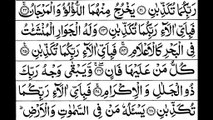 رَبِّكُمَا تُكَذِّبٰنِ ۝ يَخْرُجُ مِنْهُمَا اللُّؤْلُؤُ وَالْمَرْجَانُ ۝
فَبِاَيِّ اٰلَآءِ رَبِّكُمَا تُكَذِّبٰنِ ۝ وَلَهُ الْجَوَارِ الْمُنْشَـٰٔتُ
فِي الْبَحْرِ كَالْاَعْلَامِ ۝ فَبِاَيِّ اٰلَآءِ رَبِّكُمَا تُكَذِّبٰنِ ۝
كُلُّ مَنْ عَلَيْهَا فَانٍ ۝ وَّيَبْقٰى وَجْهُ رَبِّكَ
ذُو الْجَلٰلِ وَالْاِكْرَامِ ۝ فَبِاَيِّ اٰلَآءِ رَبِّكُمَا
تُكَذِّبٰنِ ۝ يَسْـَٔلُهٗ مَنْ فِي السَّمٰوٰتِ وَالْاَرْضِ